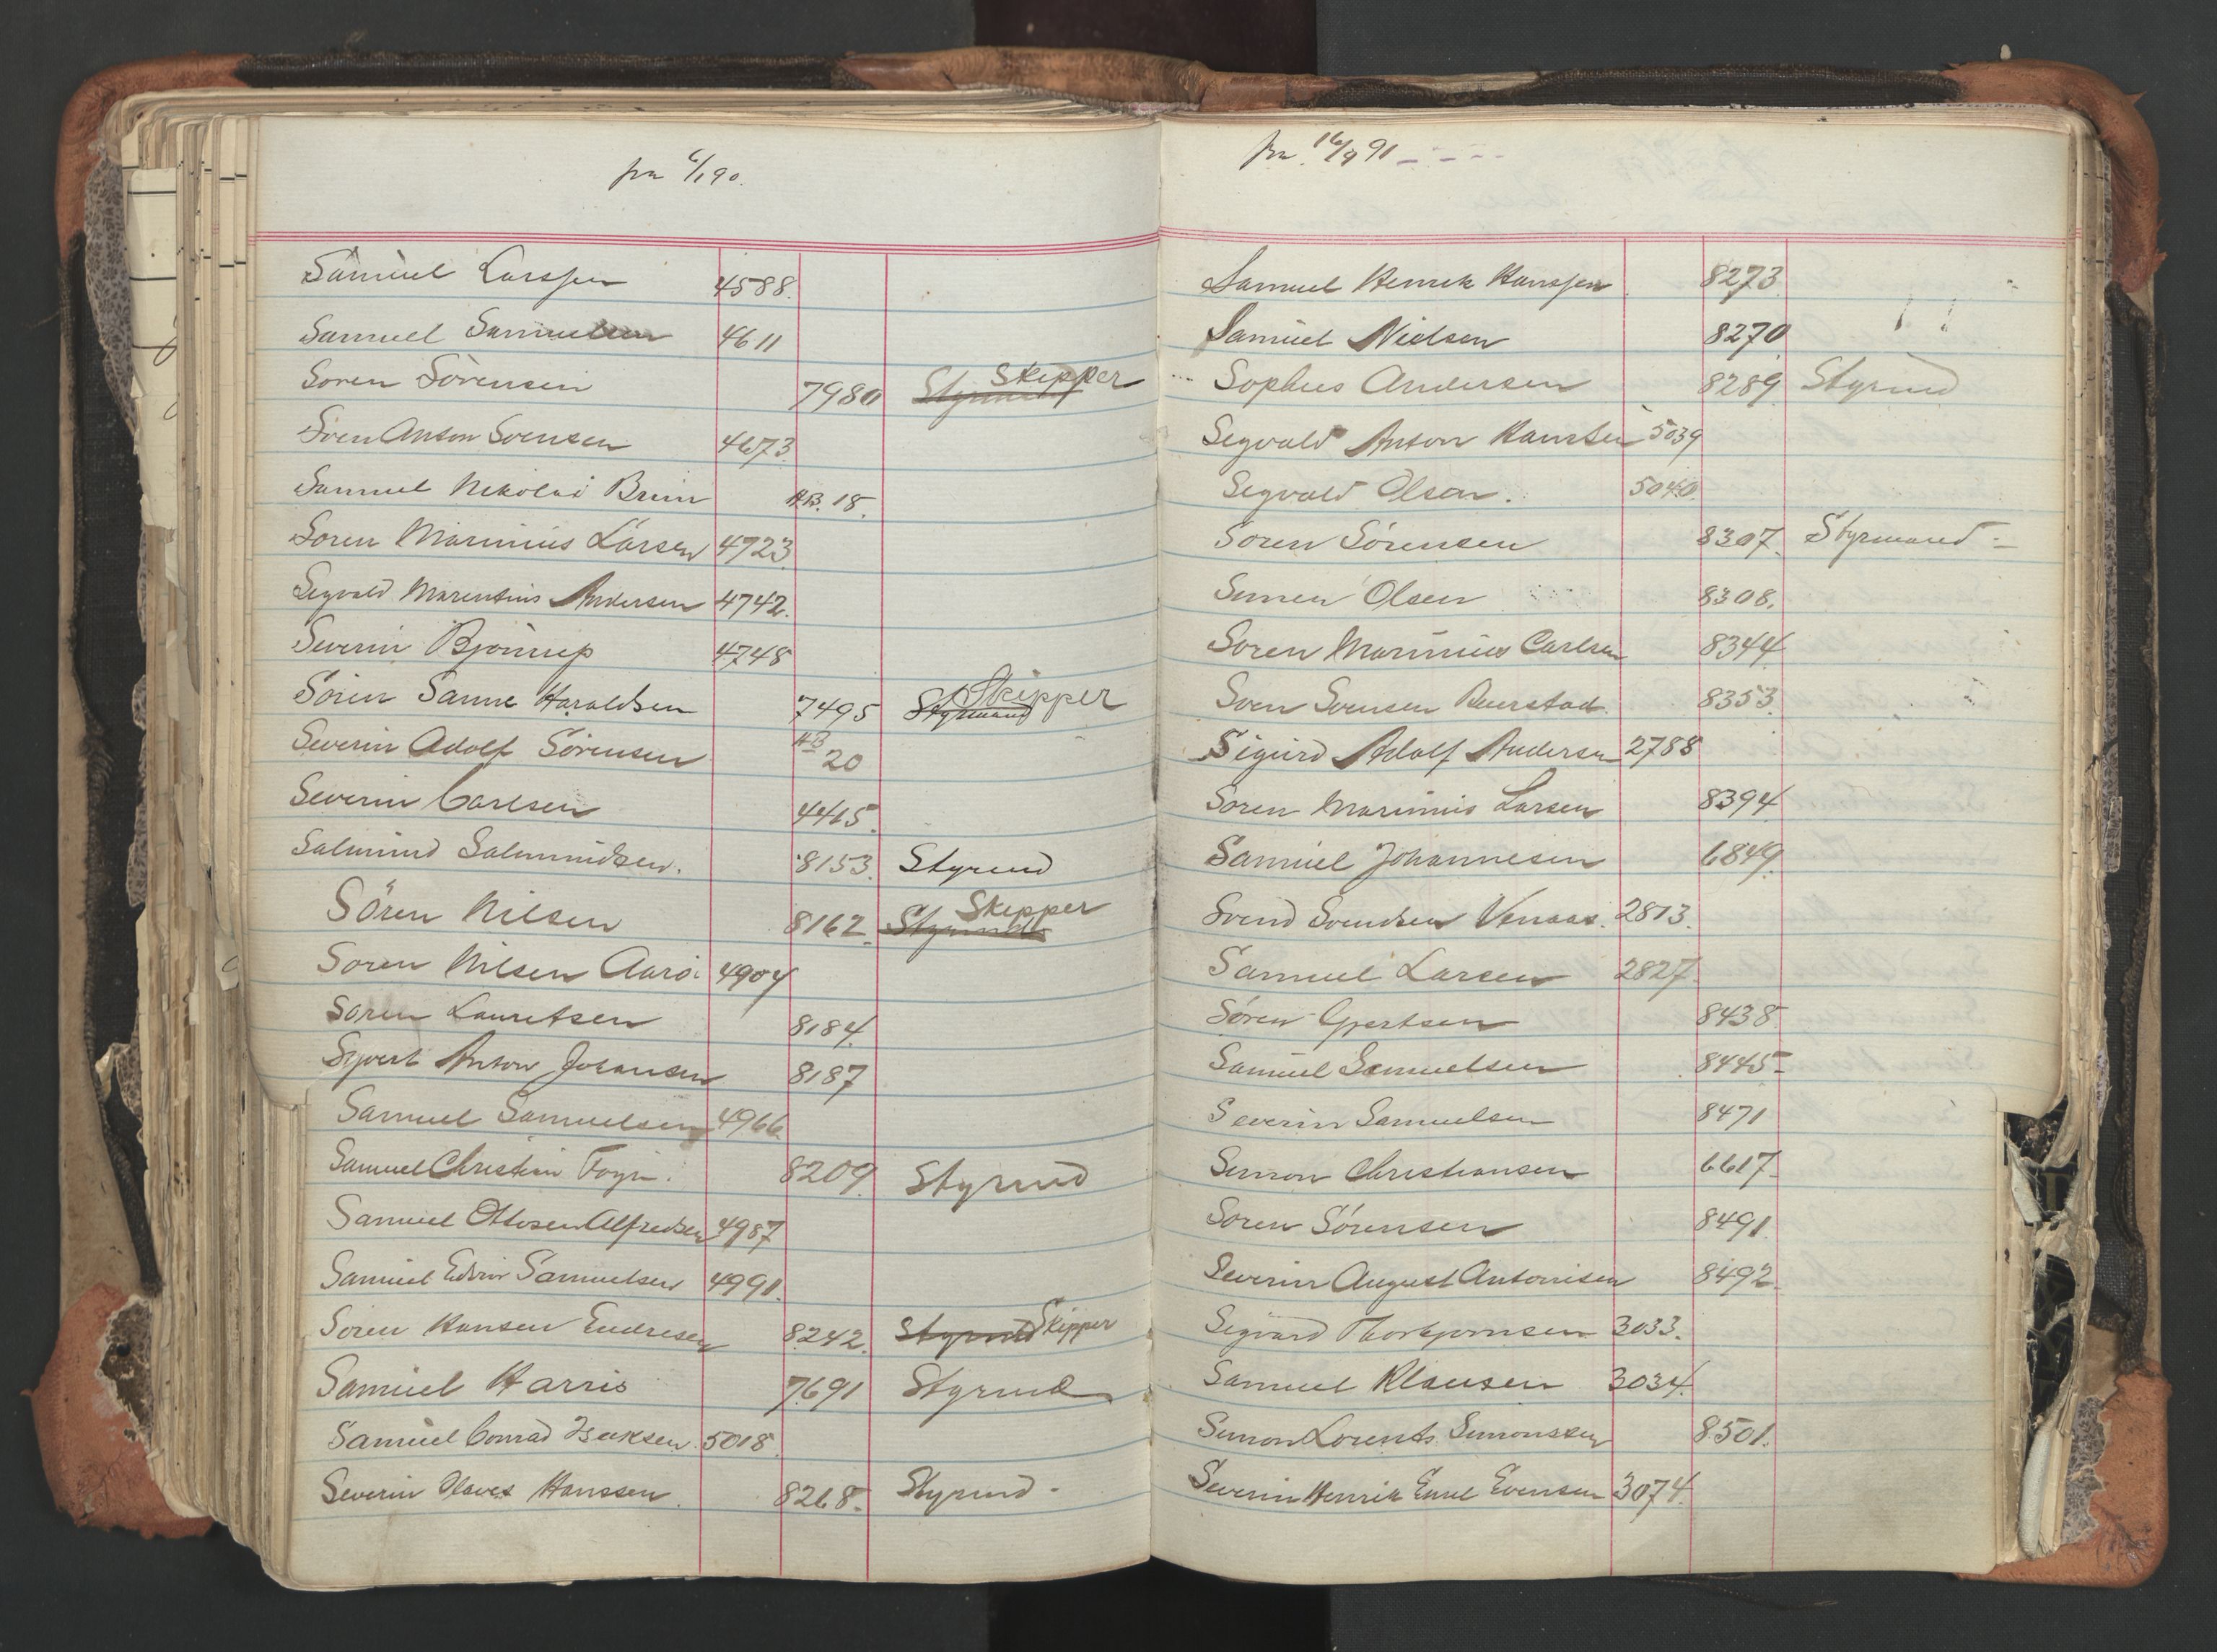 fra 6/1 90.
Samuel Larssen 4588.
Samuel Samuelsen 4611
Soren Sörensen 7980 Styrmand Skipper
Sven Anton Svensen 4673.
Samuel Nikolai Bruun HB. 18.
Soren Marinius Larsen 4723.
Segvald Marentius Andersen 4742.
Severin Bjornup 4748
Sören Sanne Haraldsen 7495 Styrmand Skipper
Severin Adolf Sörensen HB 20
Severin Carlsen 4465.
Salmund Salmundsen. 8153. Styrmd
Sören Nilsen 8162. Styrmd Skipper
Soren Nilsen Aarö. 4904
Soren Lauretsen 8184.
Syvert Anton Johansen 8187
Samuel Samuelsen 4966
Samuel Christian Foyn. 8209. Styrmd
Samuel Ottosen Alfredsen 4987
Samuel Edvin Samuelsen 4991.
Soren Hansen Endresen 8242. Styrmd Skipper
Samuel Harris 7691 Styrmd
Samuel Conrad Isaksen. 5018.
Severin Olaves Hanssen. 8268. Styrmd.
fra 16/9 91
Samuel Henrik Hanssen 8273.
Samuel Nielsen 8270
Sophus Andersen 8289. Styrmd
Segvald Anton Hansen 5039
Segvald Olsen. 5040.
Soren Sörensen 8307. Styrmand
Simen Olsen 8308.
Soren Marinius Carlsen 8344.
Sven Svensen 8353.
Sigurd Adolf Andersen 2788
Soren Marinius Larsen 8394.
Samuel Johannesen 6849.
Svend Svendsen Venaas. 2813.
Samuel Larsen 2827.
Sören Gjertsen 8438
Samuel Samuelsen 8445
Severin Samuelsen 8471
Simon Christiansen 6617
Soren Sörensen 8491.
Severin August Antonisen 8492.
Segvard Thorbjornsen 3033.
Samuel Klausen 3034.
Simon Lorents Simonssen 8501.
Severin Henrik Emil Evensen 3074.